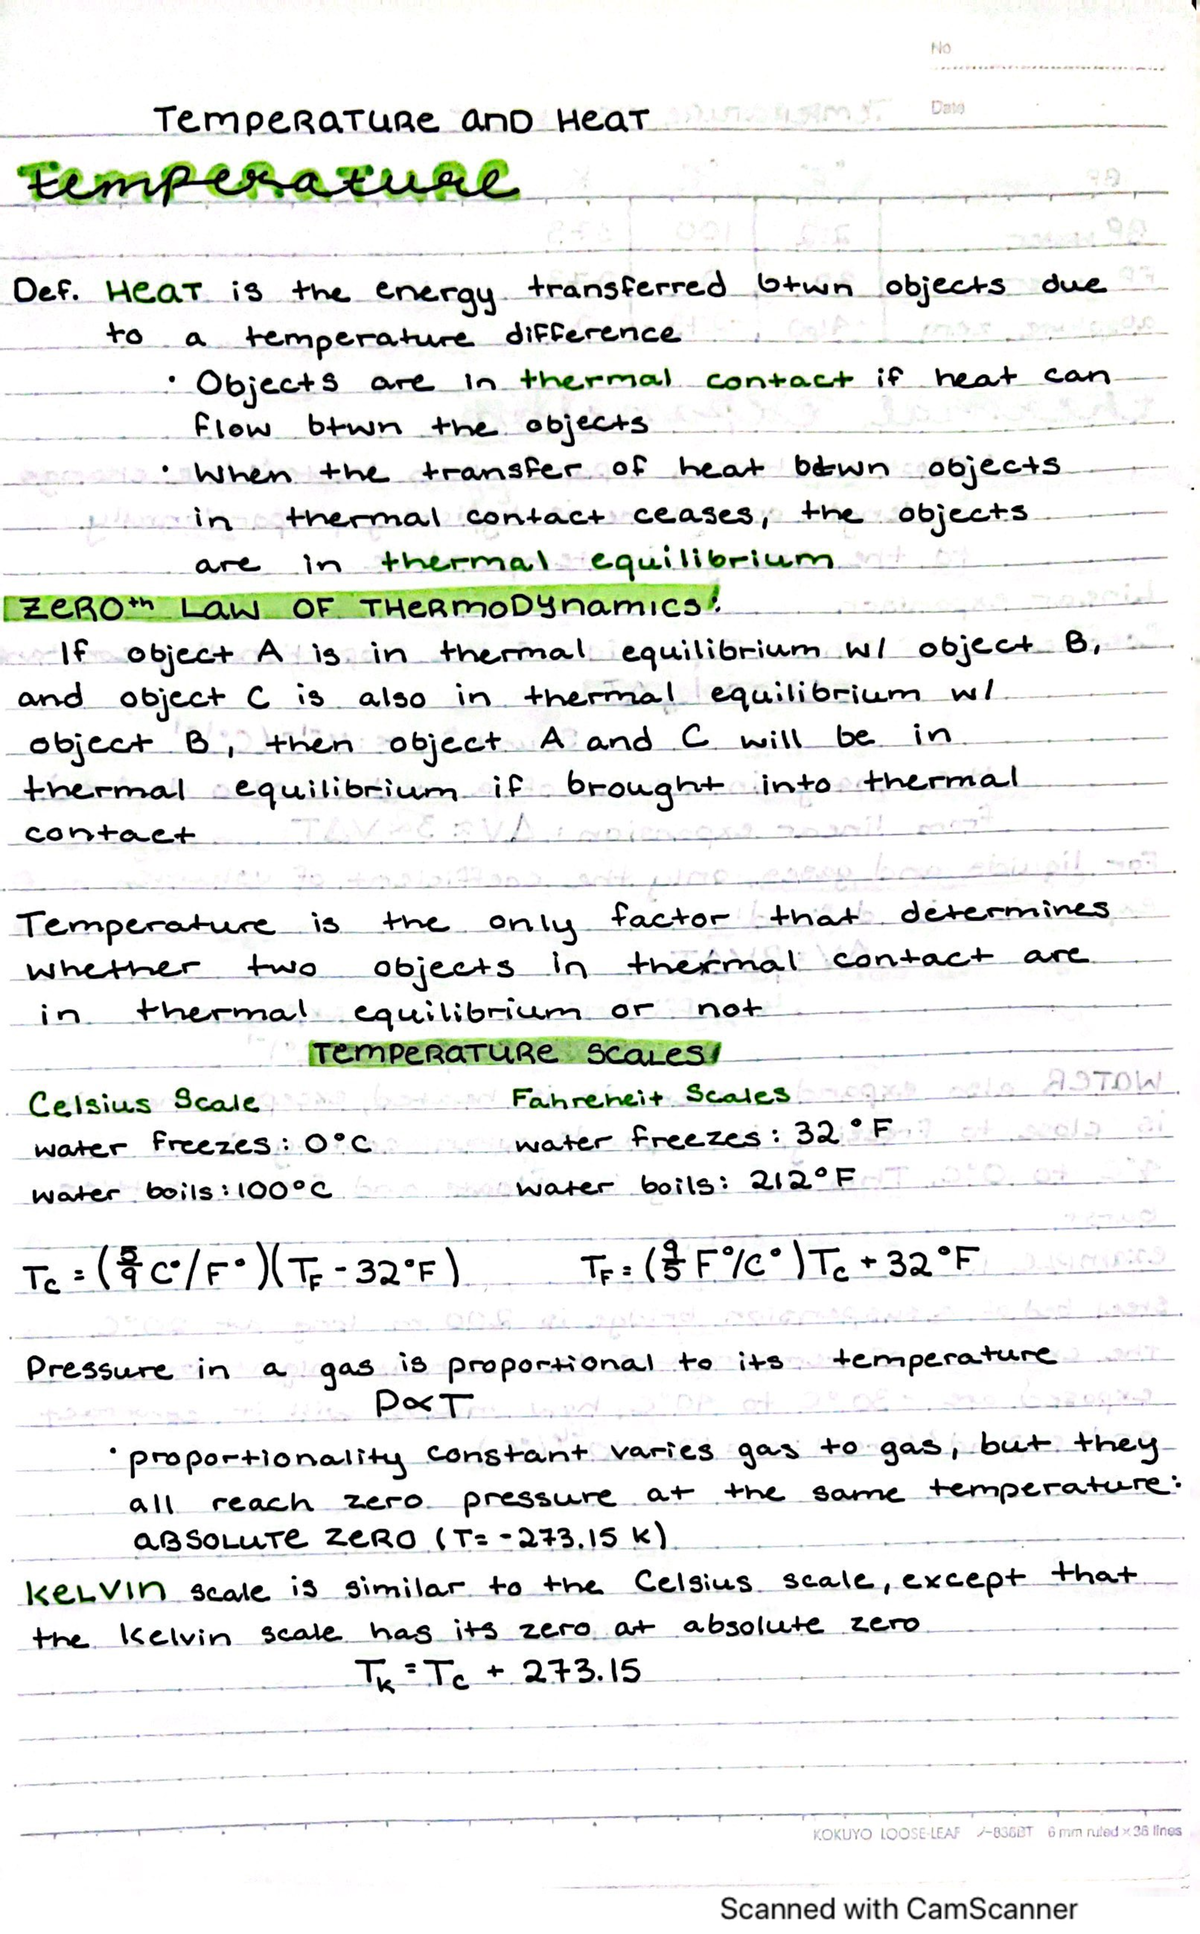 No
Date
Temperature and Heat
temperature
Def. Heat is the energy transferred btwn objects due
to a temperature difference
· Objects are in thermal contact if heat can
flow btwn the objects
· When the transfer of heat btwn objects
in thermal contact ceases, the objects
are in thermal equilibrium
Zeroth Law of Thermodynamics:
If object A is in thermal equilibrium w/ object B,
and object C is also in thermal equilibrium w/
object B, then object A and C will be in
thermal equilibrium if brought into thermal
contact
Temperature is the only factor that determines
whether two objects in thermal contact are
in thermal equilibrium or not
Temperature Scales
Celsius Scale Fahreheit Scales
water freezes: 0°C water freezes: 32°F
water boils: 100°C water boils: 212°F
Tc = (5/9 C°/F°)(TF - 32°F) TF = (9/5 F°/C°)Tc + 32°F
Pressure in a gas is proportional to its temperature
P∝T
· proportionality constant varies gas to gas, but they
all reach zero pressure at the same temperature:
absolute zero (T= -273.15 K)
Kelvin scale is similar to the Celsius scale, except that
the Kelvin scale has its zero at absolute zero
TK = Tc + 273.15
KOKUYO LOOSE-LEAF ノ-836BT 6 mm ruled × 36 lines
Scanned with CamScanner